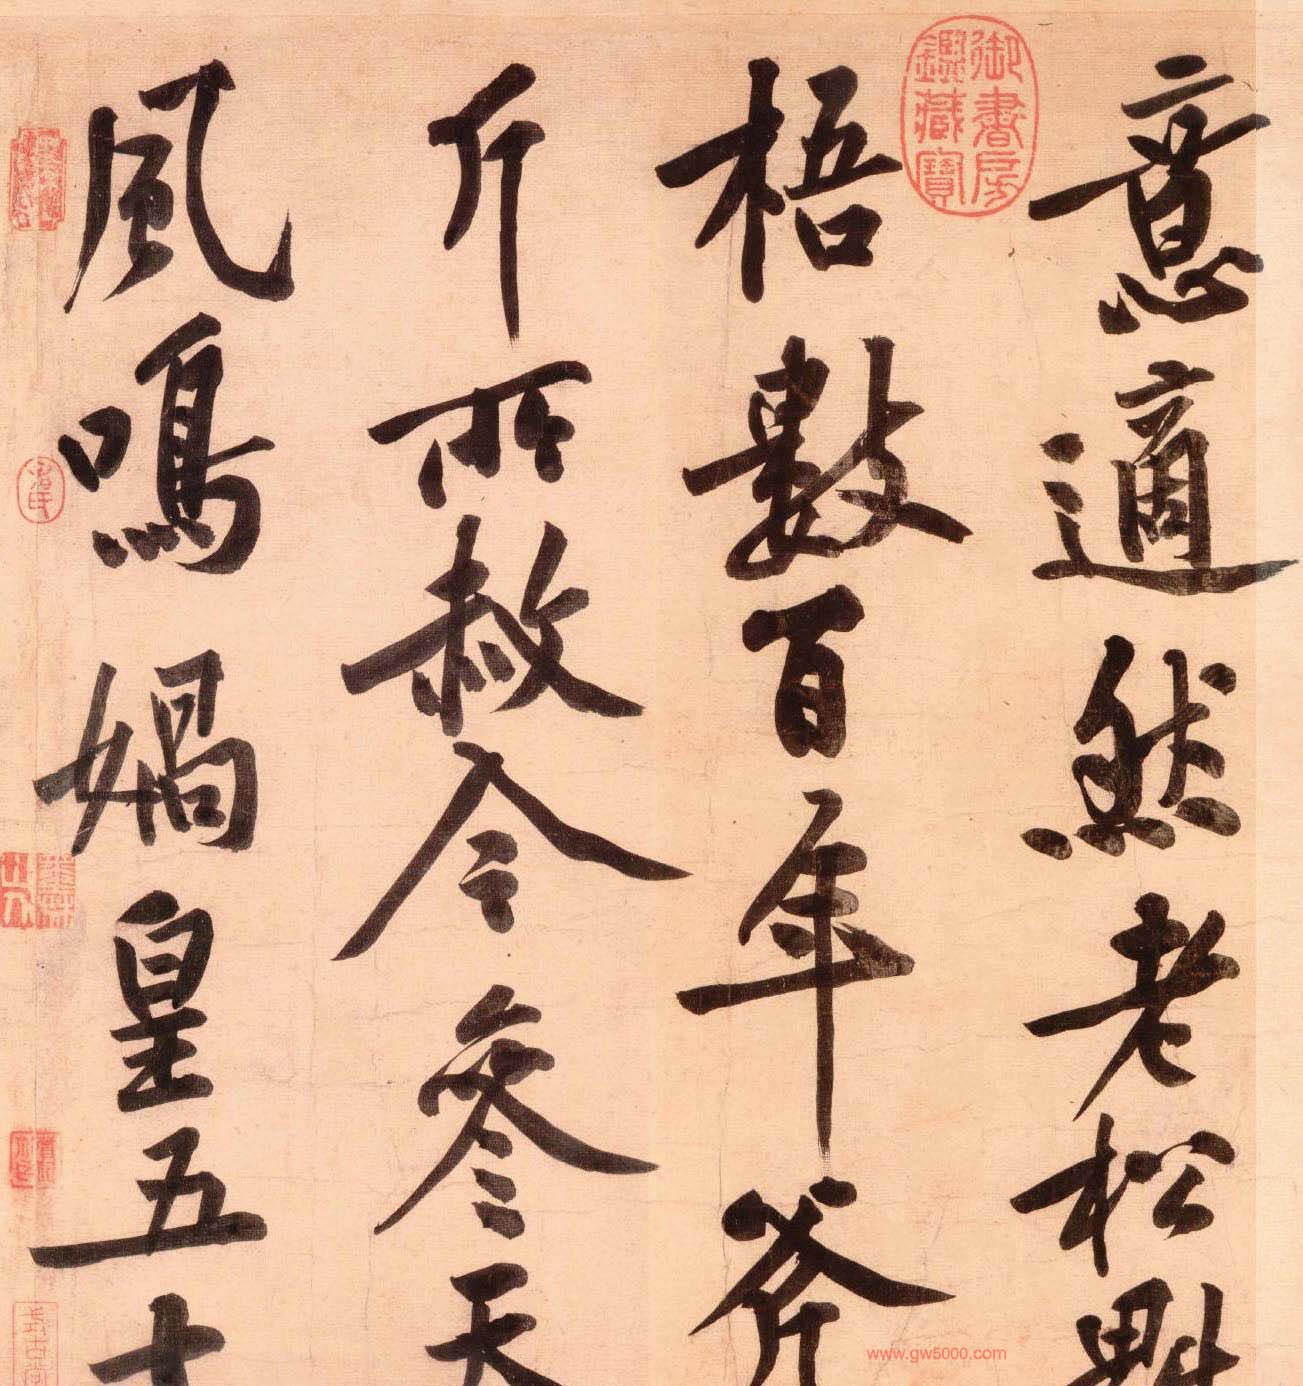 意適然老松魁
梧數百年斧
斤所赦今參天
風鳴媧皇五十
御書房鑑藏寶
www.gw5000.com